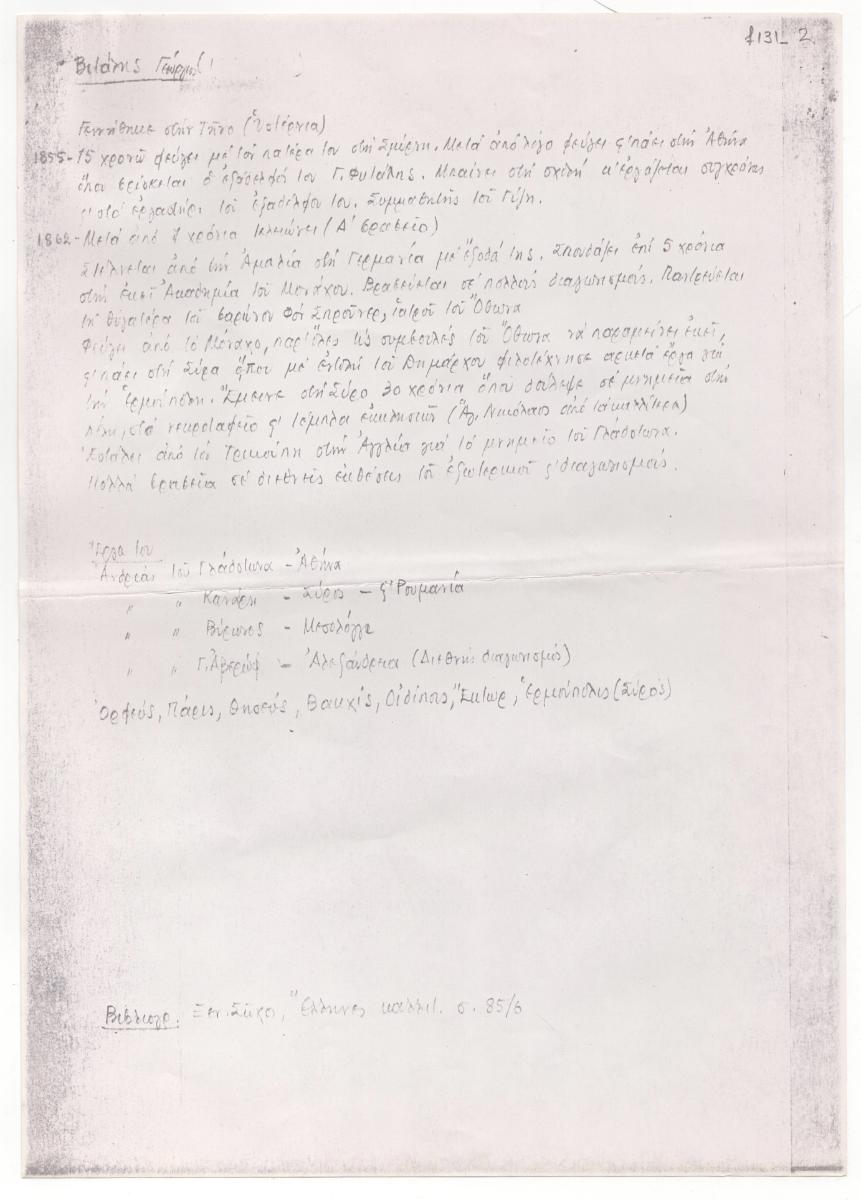 f131_ 2
Βιτάλης Γεώργιος
Γεννήθηκε στήν Τῆνο (Ὑστέρνια)
1855- 15 χρονῶ φεύγει μέ τόν πατέρα του στή Σμύρνη. Μετά ἀπό λίγο φεύγει ϛ' πάει στήν Ἀθήνα
ὅπου βρίσκεται ὁ ἐξάδελφός του Γ. Φυτάλης. Μπαίνει στή σχολή κ' ἐργάζεται συγχρόνως
ϛ' στό ἐργαστήρι τοῦ ἐξαδέλφου του. Συμμαθητής τοῦ Γύζη.
1862- Μετά ἀπό 7 χρόνια τελειώνει (Α' βραβεῖο)
Στέλνεται ἀπό τήν Ἀμαλία στή Γερμανία μέ ἔξοδά της. Σπουδάζει ἐπί 5 χρόνια
στήν ἐκεῖ Ἀκαδημία τοῦ Μονάχου. Βραβεύεται σέ πολλούς διαγωνισμούς. Παντρεύεται
τή θυγατέρα τοῦ βαρώνου Φόν Σπροῦνερ, ἰατροῦ τοῦ Ὄθωνα
Φεύγει ἀπό τό Μόναχο, παρ' ὅλες τίς συμβουλές τοῦ Ὄθωνα νά παραμείνει ἐκεῖ,
ϛ' πάει στή Σύρα ὅπου μέ ἐντολή τοῦ Δημάρχου φιλοτέχνησε ἀρκετά ἔργα γιά
τήν Ἑρμούπολη. Ἔμεινε στή Σύρο 30 χρόνια ὅπου δούλεψε σέ μνημεῖα στήν
πόλη, στό νεκροταφεῖο ϛ' τέμπλα ἐκκλησιῶν (Ἅγ. Νικόλαος ἀπό τά καλλίτερα)
Ἐστάλει ἀπό τόν Τρικούπη στήν Ἀγγλία γιά τό μνημεῖο τοῦ Γλάδστωνα.
Πολλά βραβεῖα σέ διεθνεῖς ἐκθέσεις τοῦ ἐξωτερικοῦ ϛ' διαγωνισμούς.
Ἔργα του
Ἀνδριάς τοῦ Γλάδστωνα - Ἀθήνα
" " Κανάρη - Σύρος - ϛ' Ρουμανία
" " Βύρωνος - Μεσολόγγι
" " Γ. Ἀβέρωφ - Ἀλεξάνδρεια (Διεθνής διαγωνισμός)
Ὀρφεύς, Πάρις, Θησεύς, Βακχίς, Οἰδίπους, Ἕκτωρ, Ἑρμούπολις (Σύρος)
Βιβλιογρ. Ξεν. Σῶχος, Ἕλληνες καλλιτ. σ. 85/6